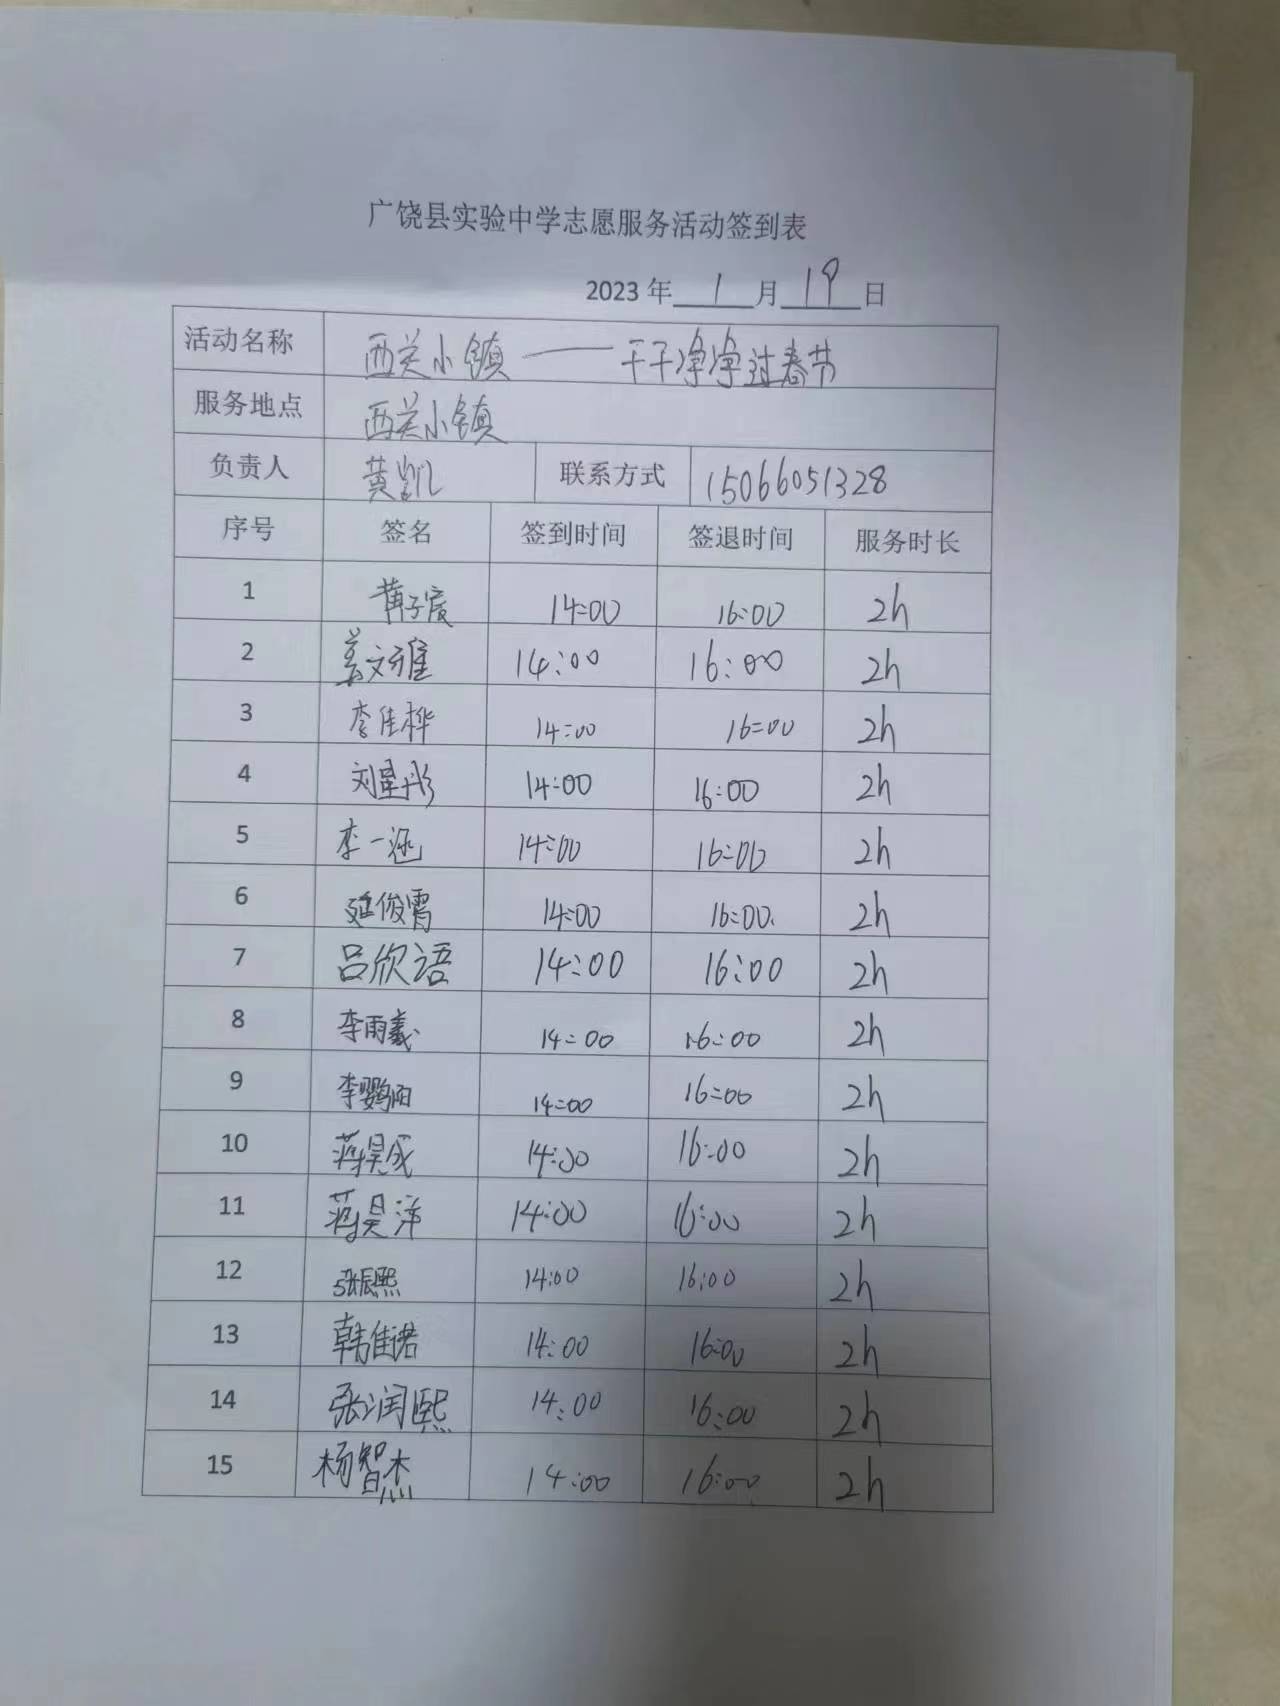 广饶县实验中学志愿服务活动签到表
2023 年 1 月 19 日
活动名称 西关小镇——干干净净过春节
服务地点 西关小镇
负责人 黄凯 联系方式 15066051328
序号 签名 签到时间 签退时间 服务时长
1 14:00 16:00 2h
2 姜文雅 14:00 16:00 2h
3 李佳桦 14:00 16:00 2h
4 刘星彤 14:00 16:00 2h
5 李一涵 14:00 16:00 2h
6 延俊霄 14:00 16:00 2h
7 吕欣语 14:00 16:00 2h
8 李雨羲 14:00 16:00 2h
9 李鹦阳 14:00 16:00 2h
10 蒋昊成 14:00 16:00 2h
11 蒋昊洋 14:00 16:00 2h
12 张辰熙 14:00 16:00 2h
13 韩佳诺 14:00 16:00 2h
14 张润熙 14:00 16:00 2h
15 杨智杰 14:00 16:00 2h